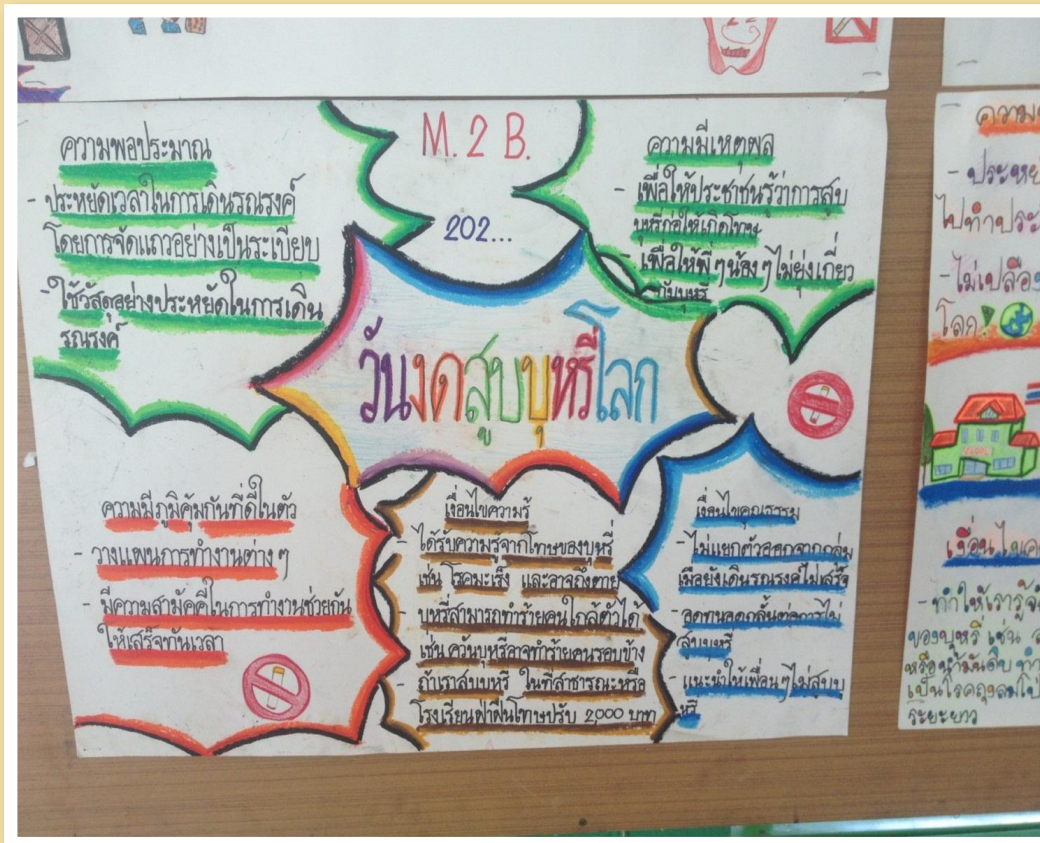 M. 2 B.
202...
วันงดสูบบุหรี่โลก
ความพอประมาณ
- ประหยัดเวลาในการเดินรณรงค์
โดยการจัดแถวอย่างเป็นระเบียบ
- ใช้วัสดุอย่างประหยัดในการเดิน
รณรงค์
ความมีเหตุผล
- เพื่อให้ประชาชนรู้ว่าการสูบ
บุหรี่ก่อให้เกิดโทษ
- เพื่อให้พี่ๆน้องๆไม่ยุ่งเกี่ยว
กับบุหรี่
ความมีภูมิคุ้มกันที่ดีในตัว
- วางแผนการทำงานต่างๆ
- มีความสามัคคีในการทำงานช่วยกัน
ให้เสร็จทันเวลา
เงื่อนไขความรู้
- ได้รับความรู้จากโทษของบุหรี่
เช่น โรคมะเร็ง และอาจถึงตาย
- บุหรี่สามารถทำร้ายคนใกล้ตัวได้
เช่น ควันบุหรี่อาจทำร้ายคนรอบข้าง
- ถ้าเราสูบบุหรี่ ในที่สาธารณะหรือ
โรงเรียนฝ่าฝืนโทษปรับ 2000 บาท
เงื่อนไขคุณธรรม
- ไม่แยกตัวออกจากกลุ่ม
เมื่อยังเดินรณรงค์ไม่เสร็จ
- อดทนอดกลั้นต่อการไม่
สูบบุหรี่
- แนะนำให้เพื่อนๆไม่สูบบุ
หรี่
- ประหยั
ไปทำประ
- ไม่เปลือง
โลก
เงื่อนไข
- ทำให้เรารู้จั
ของบุหรี่ เช่น
หรือน้ำมันดิบ ทำ
เป็นโรคถุงลมโป
ระยะยาว